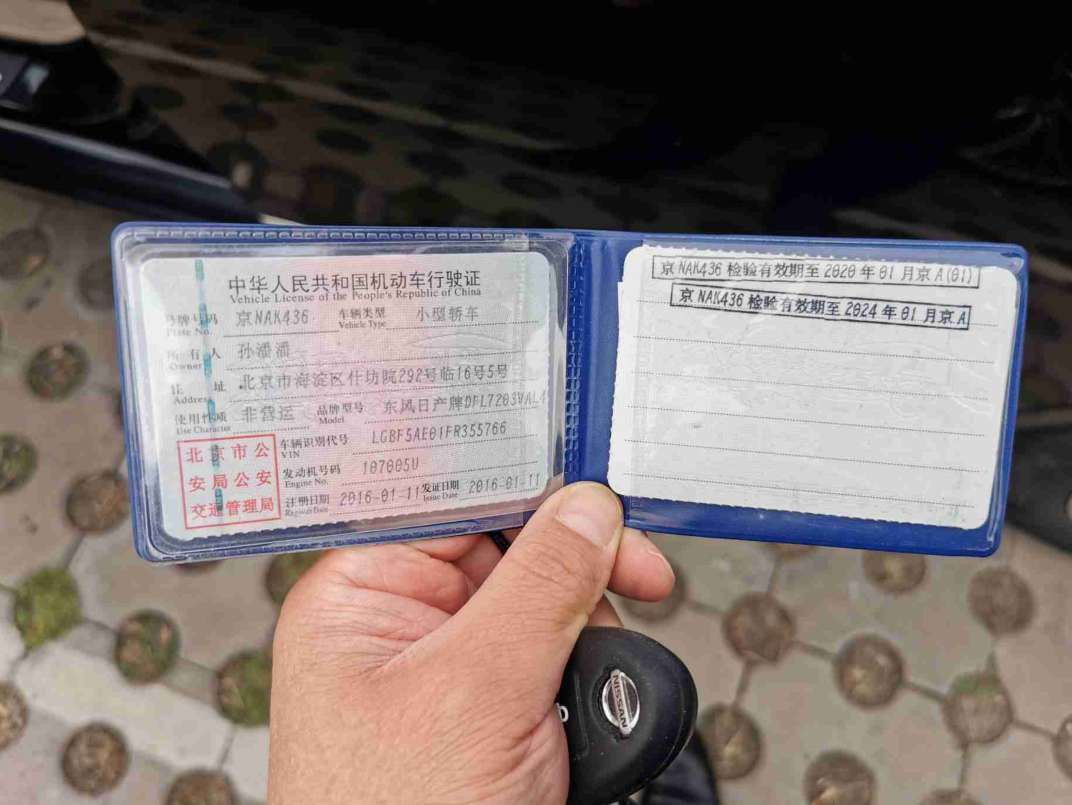 中华人民共和国机动车行驶证
Vehicle License of the People's Republic of China
号牌号码 京NAK436 车辆类型 小型轿车
Plate No. Vehicle Type
所有人 孙潘潘
Owner
住址 北京市海淀区什坊院292号临16号5号
Address
使用性质 非营运 品牌型号 东风日产牌DFL7203VAL4
Use Character Model
北京市公
安局公安
交通管理局
车辆识别代号 LGBF5AE01FR355766
VIN
发动机号码 107005U
Engine No.
注册日期 2016-01-11 发证日期 2016-01-11
Register Date Issue Date
京NAK436 检验有效期至 2020 年 01 月京 A(01)
京NAK436 检验有效期至 2024 年 01 月京 A
NISSAN